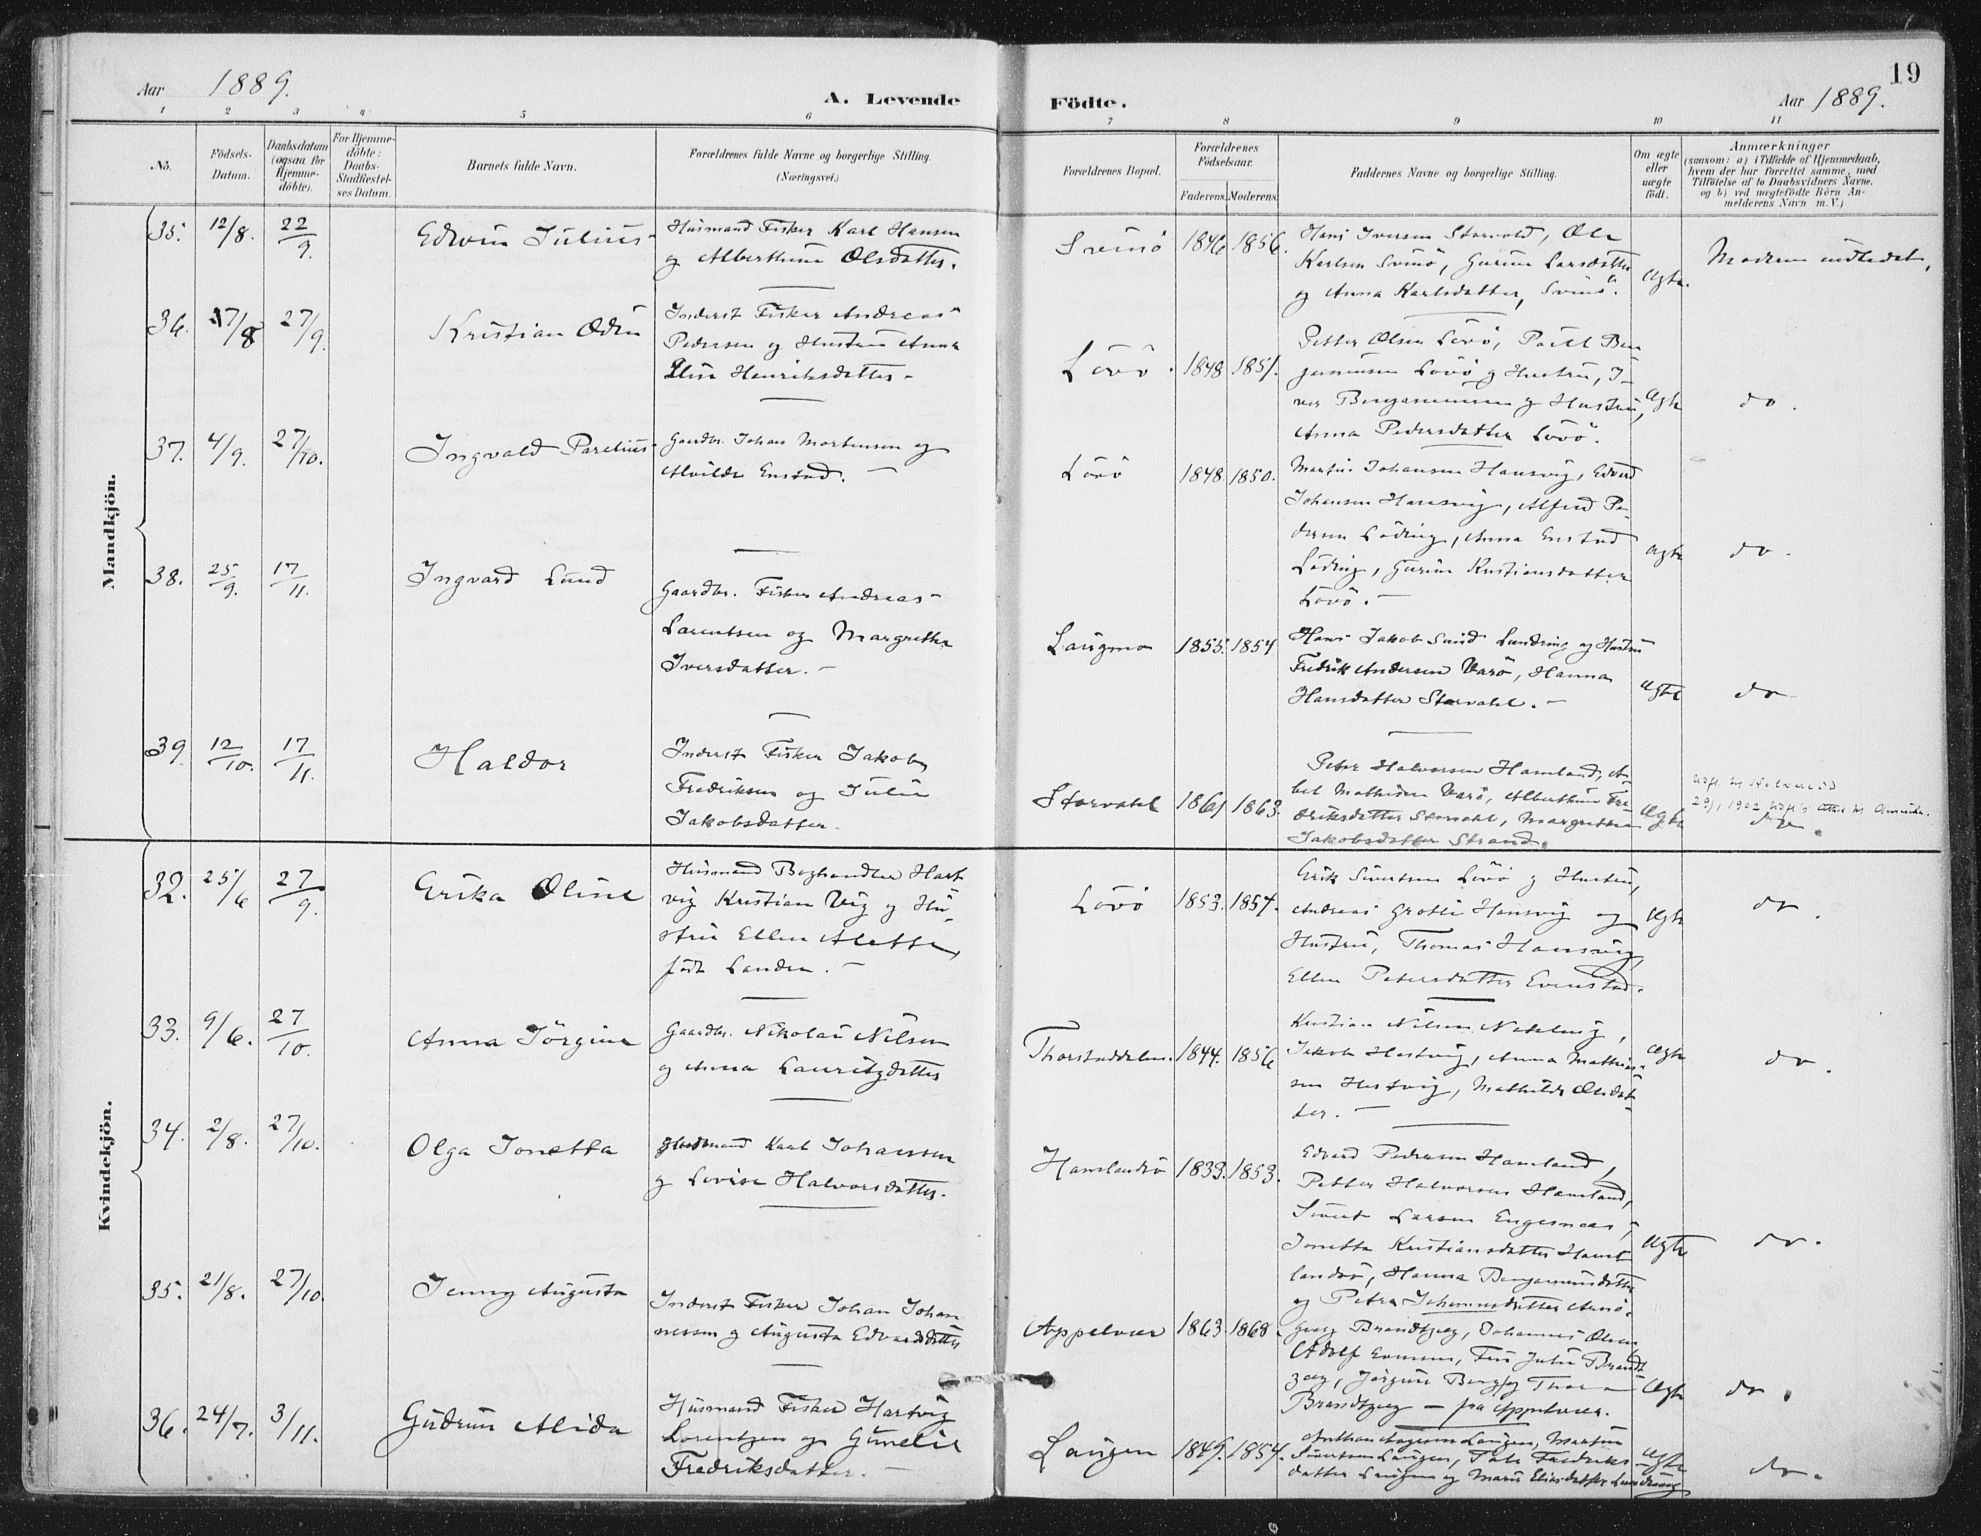 19
Aar 1889.
A. Levende Födte.
Aar 1889.
1 2 3 4 5 6 7 8 9 10 11
No.
Födsels-Datum.
Daabsdatum (ogsaa for Hjemme-döbte).
For Hjemme-döbte: Daabs-Stadfæstel-ses Datum.
Barnets fulde Navn.
Forældrenes fulde Navne og borgerlige Stilling.
(Næringsvei.)
Forældrenes Bopæl.
Forældrenes Födselsaar.
Faderens. Moderens.
Faddernes Navne og borgerlige Stilling.
Om ægte eller uægte födt.
Anmærkninger
(saasom: a) i Tilfælde af Hjemmedaab,
hvem der har forrettet samme, med
Tilföielse af to Daabsvidners Navne.
og b) ved uegtefödte Börn An-
melderens Navn m. V.)
Mandkjön.
35. 12/8. 22/9. Edvin Julius
Husmand Fisker Karl Hansen
og Alberthine Olsdatter.
Svinö 1846 1856.
Hans Iversen Storvahl, Ole
Karlsen Svinö, Gurine Larsdatter
og Anna Karlsdatter, Svinö.
Ægte. Moderen indledet.
36. 17/8 27/9. Kristian Odin
Inderst Fisker Andreas
Pedersen og Hustru Anna
Elise Henriksdatter
Lövö. 1848 1851.
Petter Olsen Lövö, Poul Ben
jaminsen Lövö og Hustru, I-
ver Benjaminsen og Hustru,
Anna Pedersdatter Lövö.
Ægte do.
37. 4/9. 27/10. Ingvald Parelius
Gaardbr. Johan Mortensen og
Alvilde Enstad.
Lövö 1848. 1850.
Martin Johansen Hansvig, Edvard
Johansen Hansvig, Alfred Pe-
dersen Löding, Anna Enstad
Löding, Gurine Kristiansdatter
Lövö.
Ægte do.
38. 25/9. 17/11. Ingvard Lund
Gaardbr. Fisker Andreas
Larentsen og Margrethe
Iversdatter.
Laugmo 1855. 1854
Hans Jakob Lund Lundring og Hustru
Fredrik Andersen Varö, Hanna
Hansdatter Storvahl.
Ægte do
39 12/10. 17/11. Haldor
Inderst Fisker Jakob
Fredriksen og Julie
Jakobsdatter.
Storvahl 1861 1863.
Peter Halvorsen Hamland, A-
bel Mathisen Varö, Alberthine Fre-
driksdatter Storvahl, Margrethe
Jakobsdatter Strand.
Ægte do.
29/1 1902
Kvindekjön.
32. 25/6 27/9. Erika Oline
Husmand Boghandler Hart
vig Kristian Vig og Hu-
stru Ellen Alette,
födt Landen.
Lövö 1853. 1854.
Erik Sivertsen Lövö og Hustru,
Andreas Hansvig og
Hustru, Thomas Hansvig,
Ellen Petersdatter Evenstad.
Ægte do.
33. 9/6. 27/10. Anna Jörgine
Gaardbr. Nikolai Nilsen
og Anna Lauritzdatter
1844. 1856
Kristian Nilsen
Jakob Hestvig, Anna Mathias-
sen Hestvig, Mathilde Olsdat-
ter.
Ægte do.
34. 2/8. 27/10. Olga Jonetta
Husmand Karl Johansen
og Lovise Halvorsdatter.
Hamlandsö 1833. 1853.
Edvard Pedersen Hamland,
Petter Halvorsen Hamland,
Sivert Larsen Engesnæs,
Jonetta Kristiansdatter Ham-
landsö, Hanna Benjaminsdatter
og Petra Johannesdatter Arnö.
Ægte do.
35. 21/8. 27/10. Jenny Augusta
Inderst Fisker Johan Johan
nessen og Augusta Edvardsdatter
Appelvær 1863. 1868.
Georg Brandtzæg, Johannes Olsen,
Adolf Evensen, Julie Brandt
zæg, Jörgine Berg og Thora
Brandtzæg – fra Appelvær.
Ægte do.
36. 24/7. 3/11. Gudrun Alida
Husmand Fisker Hartvig
Lorentzen og Gunelie
Fredriksdatter.
Laugen 1849. 1854.
Anthon Aagesen Laugen, Martin
Sivertsen Laugen, Fredriks-
datter Laugen og Marie Eliasdatter Lundring
Ægte do.